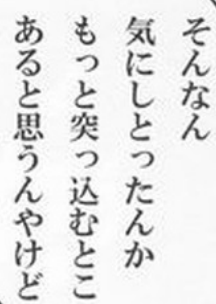 そんなん
気にしとったんか
もっと突っ込むとこ
あると思うんやけど